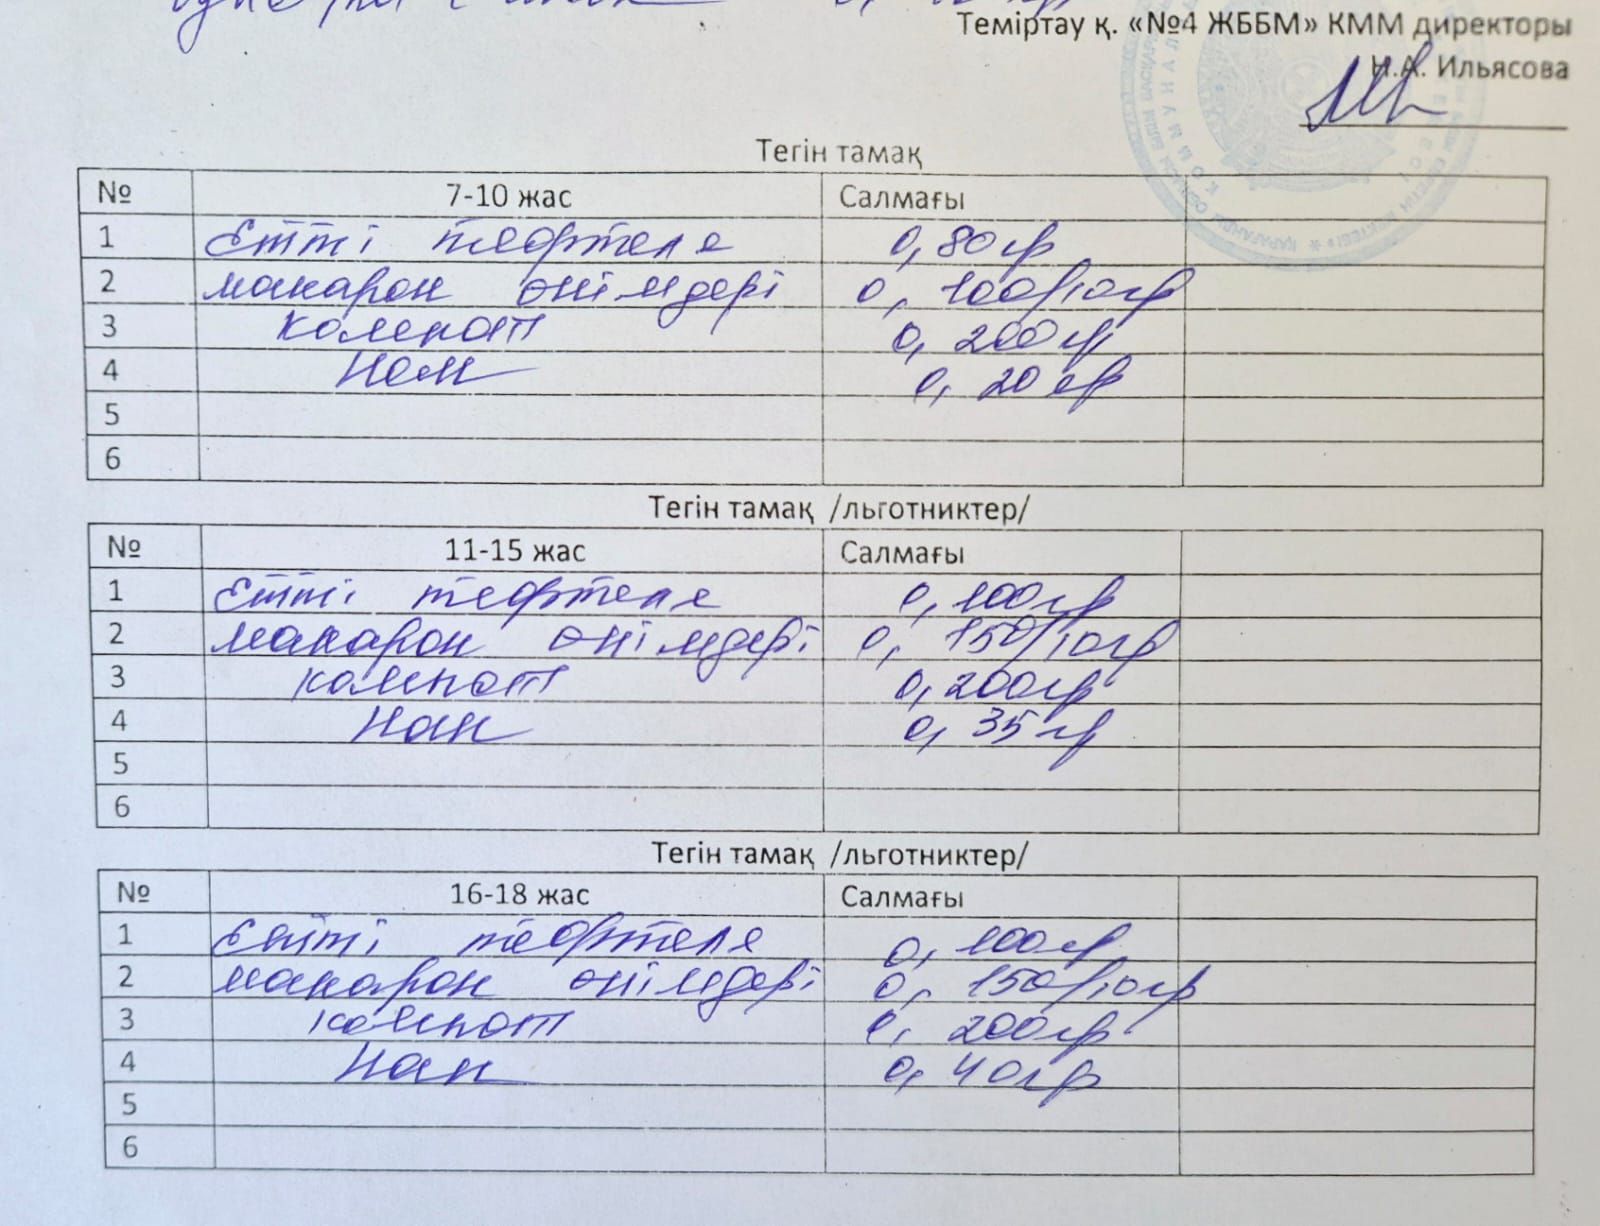 Теміртау қ. «№4 ЖББМ» КММ директоры
Н.А. Ильясова
Тегін тамақ
№ 7-10 жас Салмағы
1 Етті тефтеле 0,80гр
2 макарон өнімдері 0, 100/10гр
3 компот 0, 200гр
4 Нан 0, 20гр
5
6
Тегін тамақ /льготниктер/
№ 11-15 жас Салмағы
1 Етті тефтеле 0, 100гр
2 макарон өнімдері 0, 150/10гр
3 компот 0,200гр
4 Нан 0, 35гр
5
6
Тегін тамақ /льготниктер/
№ 16-18 жас Салмағы
1 Етті тефтеле 0, 100гр
2 макарон өнімдері 0, 150/10гр
3 компот 0, 200гр
4 Нан 0, 40гр
5
6